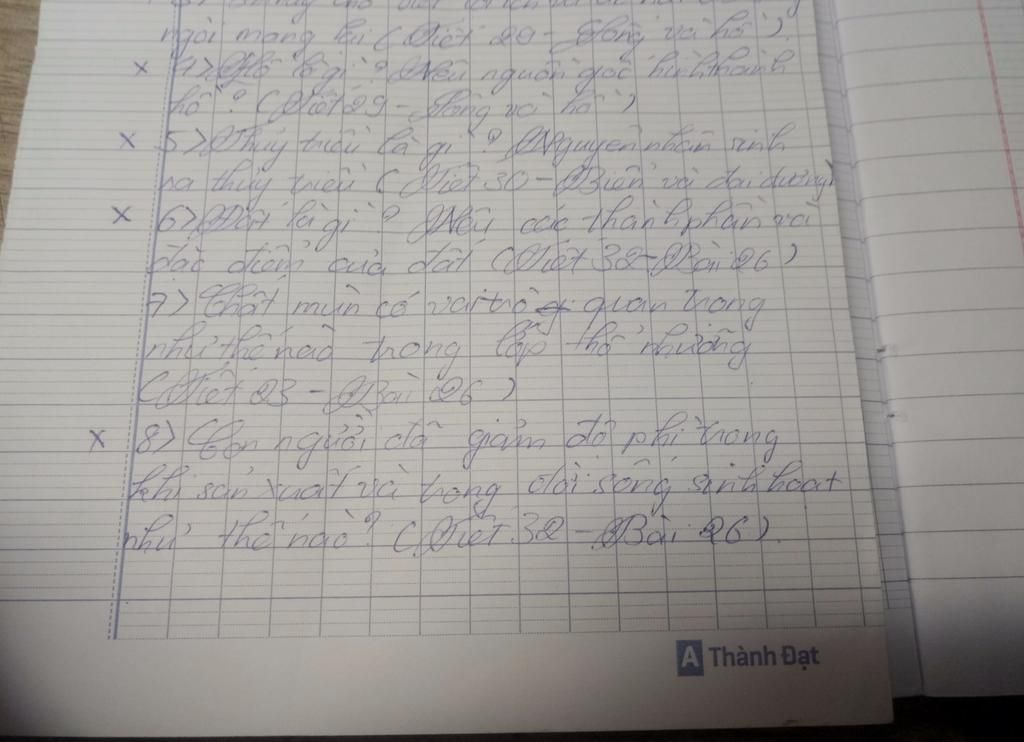 ngòi mang lại (Tiết 29 - Sông và hồ).
x 4) Hồ là gì? Nêu nguồn gốc hình thành
hồ? (Tiết 29 - Sông và hồ)
x 5) Thủy triều là gì? Nguyên nhân sinh
ra thủy triều (Tiết 30 - Biển và đại dương)
x 6) Đất là gì? Nêu các thành phần và
đặc điểm của đất (Tiết 32 - Bài 26)
7) Chất mùn có vai trò quan trọng
như thế nào trong lớp thổ nhưỡng
(Tiết 23 - Bài 26)
x 8) Con người đã giảm độ phì trong
khi sản xuất và trong đời sống sinh hoạt
như thế nào? (Tiết 32 - Bài 26).
A Thành Đạt